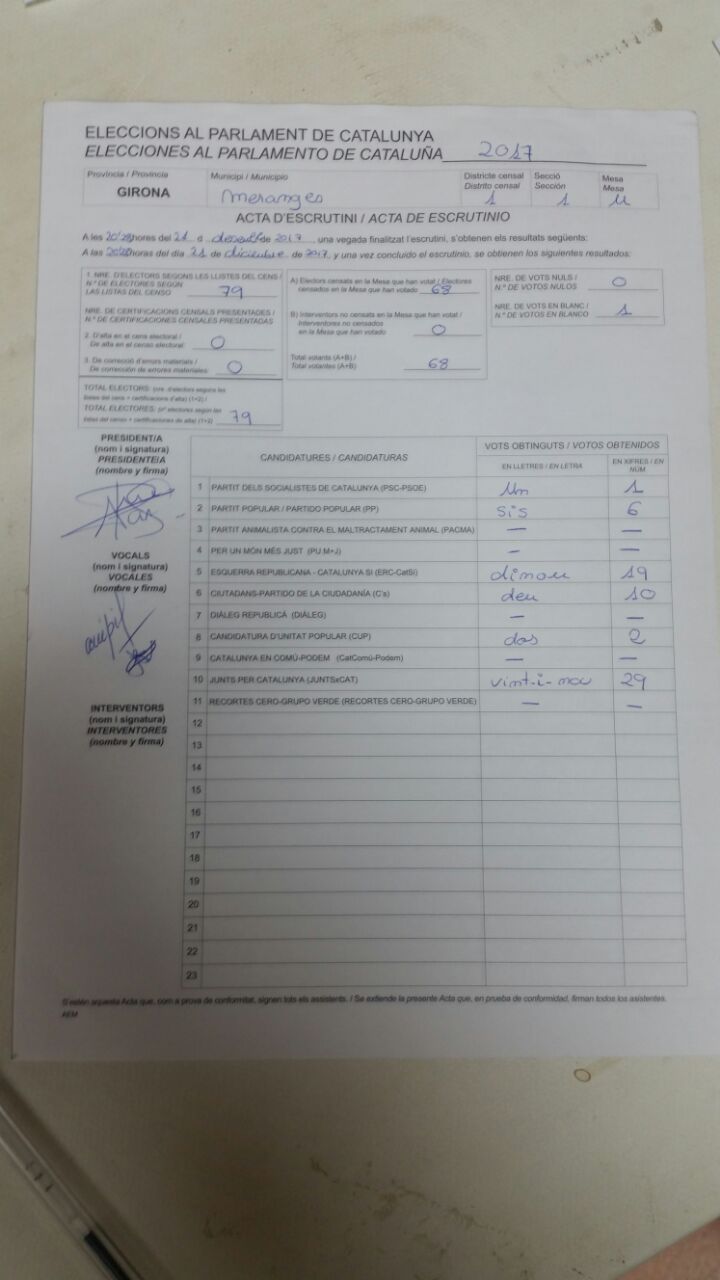 ELECCIONS AL PARLAMENT DE CATALUNYA
ELECCIONES AL PARLAMENTO DE CATALUÑA 2017
Província / Provincia
GIRONA
Municipi / Municipio
Meranges
Districte censal
Distrito censal
1
Secció
Sección
1
Mesa
Mesa
U
ACTA D'ESCRUTINI / ACTA DE ESCRUTINIO
A les 20'28 hores del 21 d desembre de 2017, una vegada finalitzat l'escrutini, s'obtenen els resultats següents:
A las 20'28 horas del día 21 de diciembre de 2017, y una vez concluido el escrutinio, se obtienen los siguientes resultados:
1. NRE. D'ELECTORS SEGONS LES LLISTES DEL CENS /
N.º DE ELECTORES SEGÚN
LAS LISTAS DEL CENSO 79
NRE. DE CERTIFICACIONS CENSALS PRESENTADES /
N.º DE CERTIFICACIONES CENSALES PRESENTADAS
2. D'alta en el cens electoral /
De alta en el censo electoral: 0
3. De correcció d'errors materials /
De corrección de errores materiales: 0
TOTAL ELECTORS: (nre. d'electors segons les
llistes del cens + certificacions d'alta) (1+2) /
TOTAL ELECTORES: (nº electores según las
listas del censo + certificaciones de alta) (1+2) 79
A) Electors censats en la Mesa que han votat / Electores
censados en la Mesa que han votado 68
B) Interventors no censats en la Mesa que han votat /
Interventores no censados
en la Mesa que han votado 0
Total votants (A+B) /
Total votantes (A+B) 68
NRE. DE VOTS NULS /
N.º DE VOTOS NULOS 0
NRE. DE VOTS EN BLANC /
N.º DE VOTOS EN BLANCO 1
PRESIDENT/A
(nom i signatura)
PRESIDENTE/A
(nombre y firma)
VOCALS
(nom i signatura)
VOCALES
(nombre y firma)
INTERVENTORS
(nom i signatura)
INTERVENTORES
(nombre y firma)
CANDIDATURES / CANDIDATURAS
VOTS OBTINGUTS / VOTOS OBTENIDOS
EN LLETRES / EN LETRA
EN XIFRES / EN NÚM.
1 PARTIT DELS SOCIALISTES DE CATALUNYA (PSC-PSOE) Un 1
2 PARTIT POPULAR / PARTIDO POPULAR (PP) sis 6
3 PARTIT ANIMALISTA CONTRA EL MALTRACTAMENT ANIMAL (PACMA) — —
4 PER UN MÓN MÉS JUST (PUM+J) — —
5 ESQUERRA REPUBLICANA - CATALUNYA SÍ (ERC-CatSí) dinou 19
6 CIUTADANS-PARTIDO DE LA CIUDADANÍA (C's) deu 10
7 DIÀLEG REPUBLICÀ (DIÀLEG) — —
8 CANDIDATURA D'UNITAT POPULAR (CUP) dos 2
9 CATALUNYA EN COMÚ-PODEM (CatComú-Podem) — —
10 JUNTS PER CATALUNYA (JUNTSxCAT) vint-i-nou 29
11 RECORTES CERO-GRUPO VERDE (RECORTES CERO-GRUPO VERDE) — —
12
13
14
15
16
17
18
19
20
21
22
23
S'estén aquesta Acta que, com a prova de conformitat, signen tots els assistents. / Se extiende la presente Acta que, en prueba de conformidad, firman todos los asistentes.
AEM